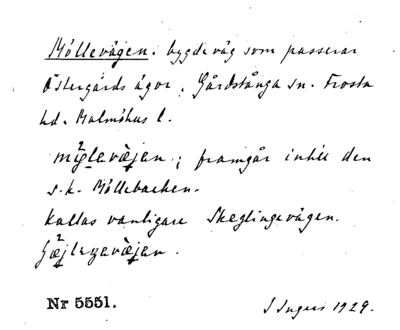 Möllevägen. bygdeväg som passerar
Östergårds ägor, Gårdstånga sn. Frosta
hd. Malmöhus l.
mǿlevæjen; framgår intill den
s.k. Möllebacken.
kallas vanligare Skeglingevägen.
Nr 5551.
S Ingers 1929.